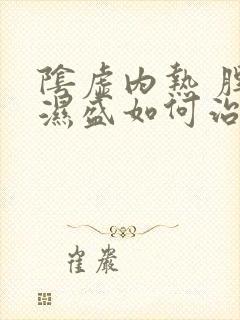 陰虛内熱
濕盛如何治
崔巖